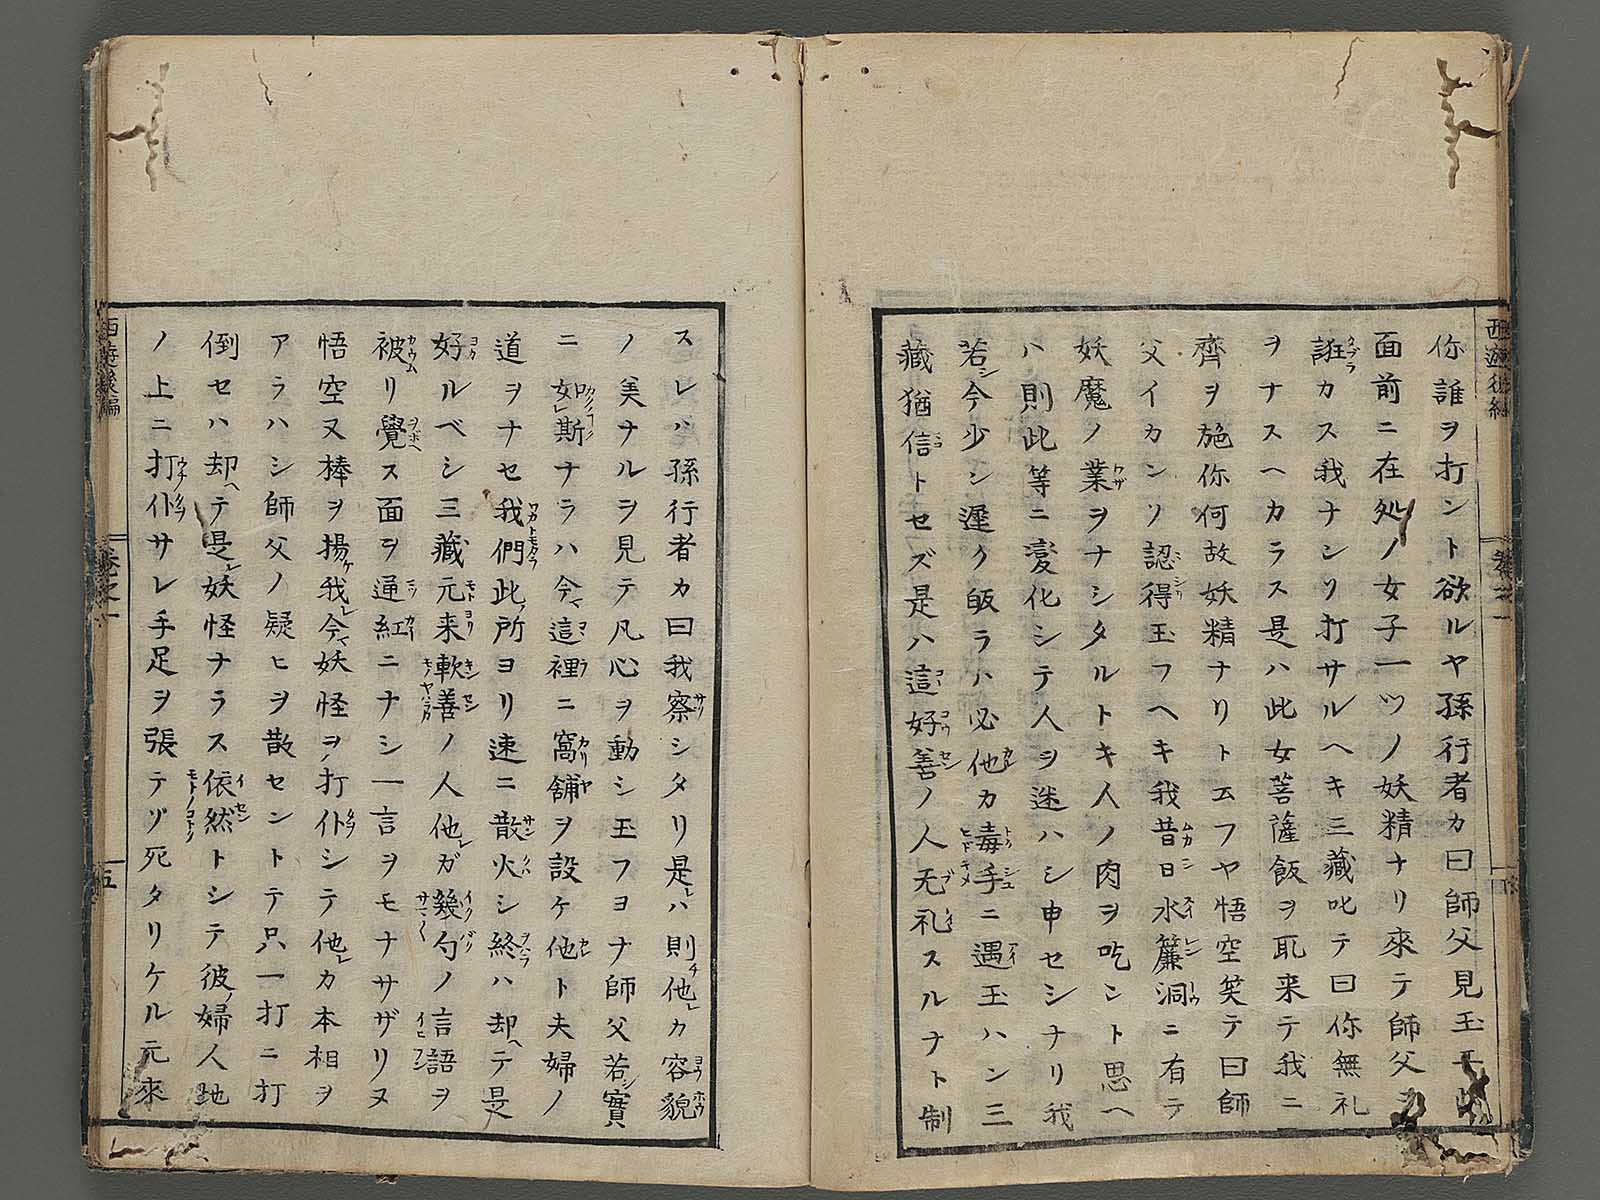 你誰ヲ打ント欲ルヤ孫行者カ曰師父見玉
面前ニ在処ノ女子一ツノ妖精ナリ來テ師父ヲ
誑カス我ナンリ打サルヘキ三藏叱テ曰你無礼
ヲナスヘカラス是ハ此女菩薩飯ヲ耴来テ我ニ
齊ヲ施你何故妖精ナリト云フヤ悟空笑テ曰師
父イカンソ認得玉フヘキ我昔日水簾洞ニ有テ
妖魔ノ業ヲナシタルトキ人ノ肉ヲ吃ント思ヘ
ハ則此等ニ変化シテ人ヲ迷ハシ申セシナリ我
若今少シ遲ク皈ラハ必他カ毒手ニ遇玉ハン三
藏猶信トセズ是ハ這好善ノ人无礼スルナト制
スレハ孫行者カ曰我察シタリ是ハ則他カ容貌
ノ美ナルヲ見テ凡心ヲ動シ玉フヨナ師父若實
ニ如斯ナラハ今這裡ニ窩舗ヲ設ケ他ト夫婦ノ
道ヲナセ我們此所ヨリ速ニ散火シ終ハ却テ是
好ルベシ三藏元来軟善ノ人他ガ幾勺ノ言語ヲ
被リ覺ス面ヲ通紅ニナシ一言ヲモナサザリヌ
悟空又棒ヲ揚我今妖怪ヲ打仆シテ他カ本相ヲ
アラハシ師父ノ疑ヒヲ散セントテ只一打ニ打
倒セハ却テ是妖怪ナラス依然トシテ彼婦人地
ノ上ニ打仆サレ手足ヲ張テゾ死タリケル元來
西遊後編
巻之一
五